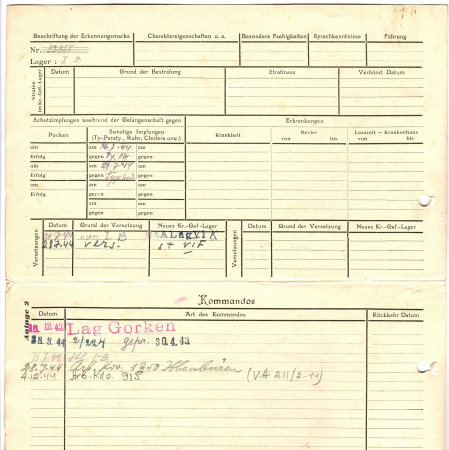 Beschriftung der Erkennungsmarke Charaktereigenschaften u. a. Besondere Faehigkeiten Sprachkenntnisse Führung
Nr.
Lager: I B
Strafen im Kr.-Gef.-Lager Datum Grund der Bestrafung Strafmass Verbüsst Datum
Schutzimpfungen waehrend der Gefangenschaft gegen Erkrankungen
Pocken Sonstige Impfungen (Ty-Paraty., Ruhr, Cholera usw.) Krankheit Revier von bis Lazarett - Krankenhaus von bis
am am 16.7.44 am
Erfolg gegen gegen
am am am
Erfolg gegen gegen
am am am
Erfolg gegen gegen
am am
gegen gegen
Versetzungen Datum Grund der Versetzung Neues Kr.-Gef.-Lager Versetzungen Datum Grund der Versetzung Neues Kr.-Gef.-Lager
von I B
28.7.44 vers. st VI F
Anlage 2
Kommandos
Datum Art des Kommandos Rückkehr Datum
12.43 Lag Gorken
28.2.44 2/224 gepr. 30.4.43
28.7.44 Arb. Kdo. Ibbenbüren
4.12.44 Arb. Kdo. 915 (VA 211/2-44)